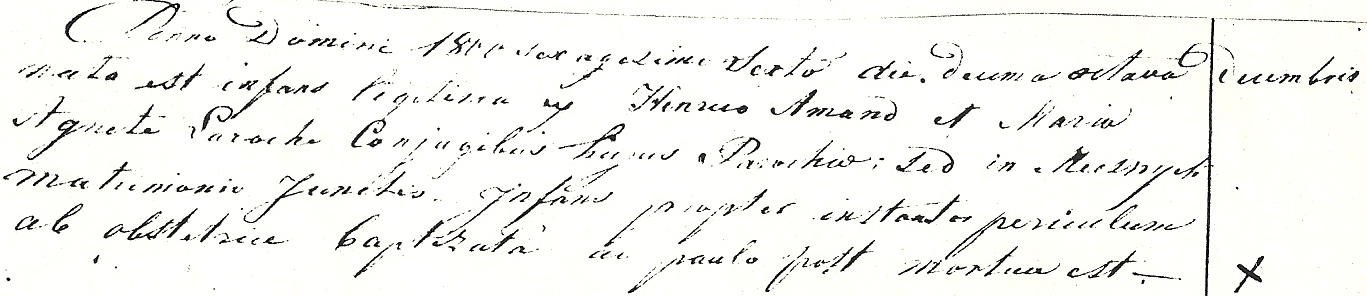 Anno Domini 18 sexagesimo sexto die. decima octava Decembris
nata est infans legitima ex Henrico Amand et Maria
Agnete Laroche Conjugibus hujus Parochiae; sed in
matrimonio Junctis. Infans propter instantes periculum
ab obstetrice baptizata ac paulo post mortua est —
X